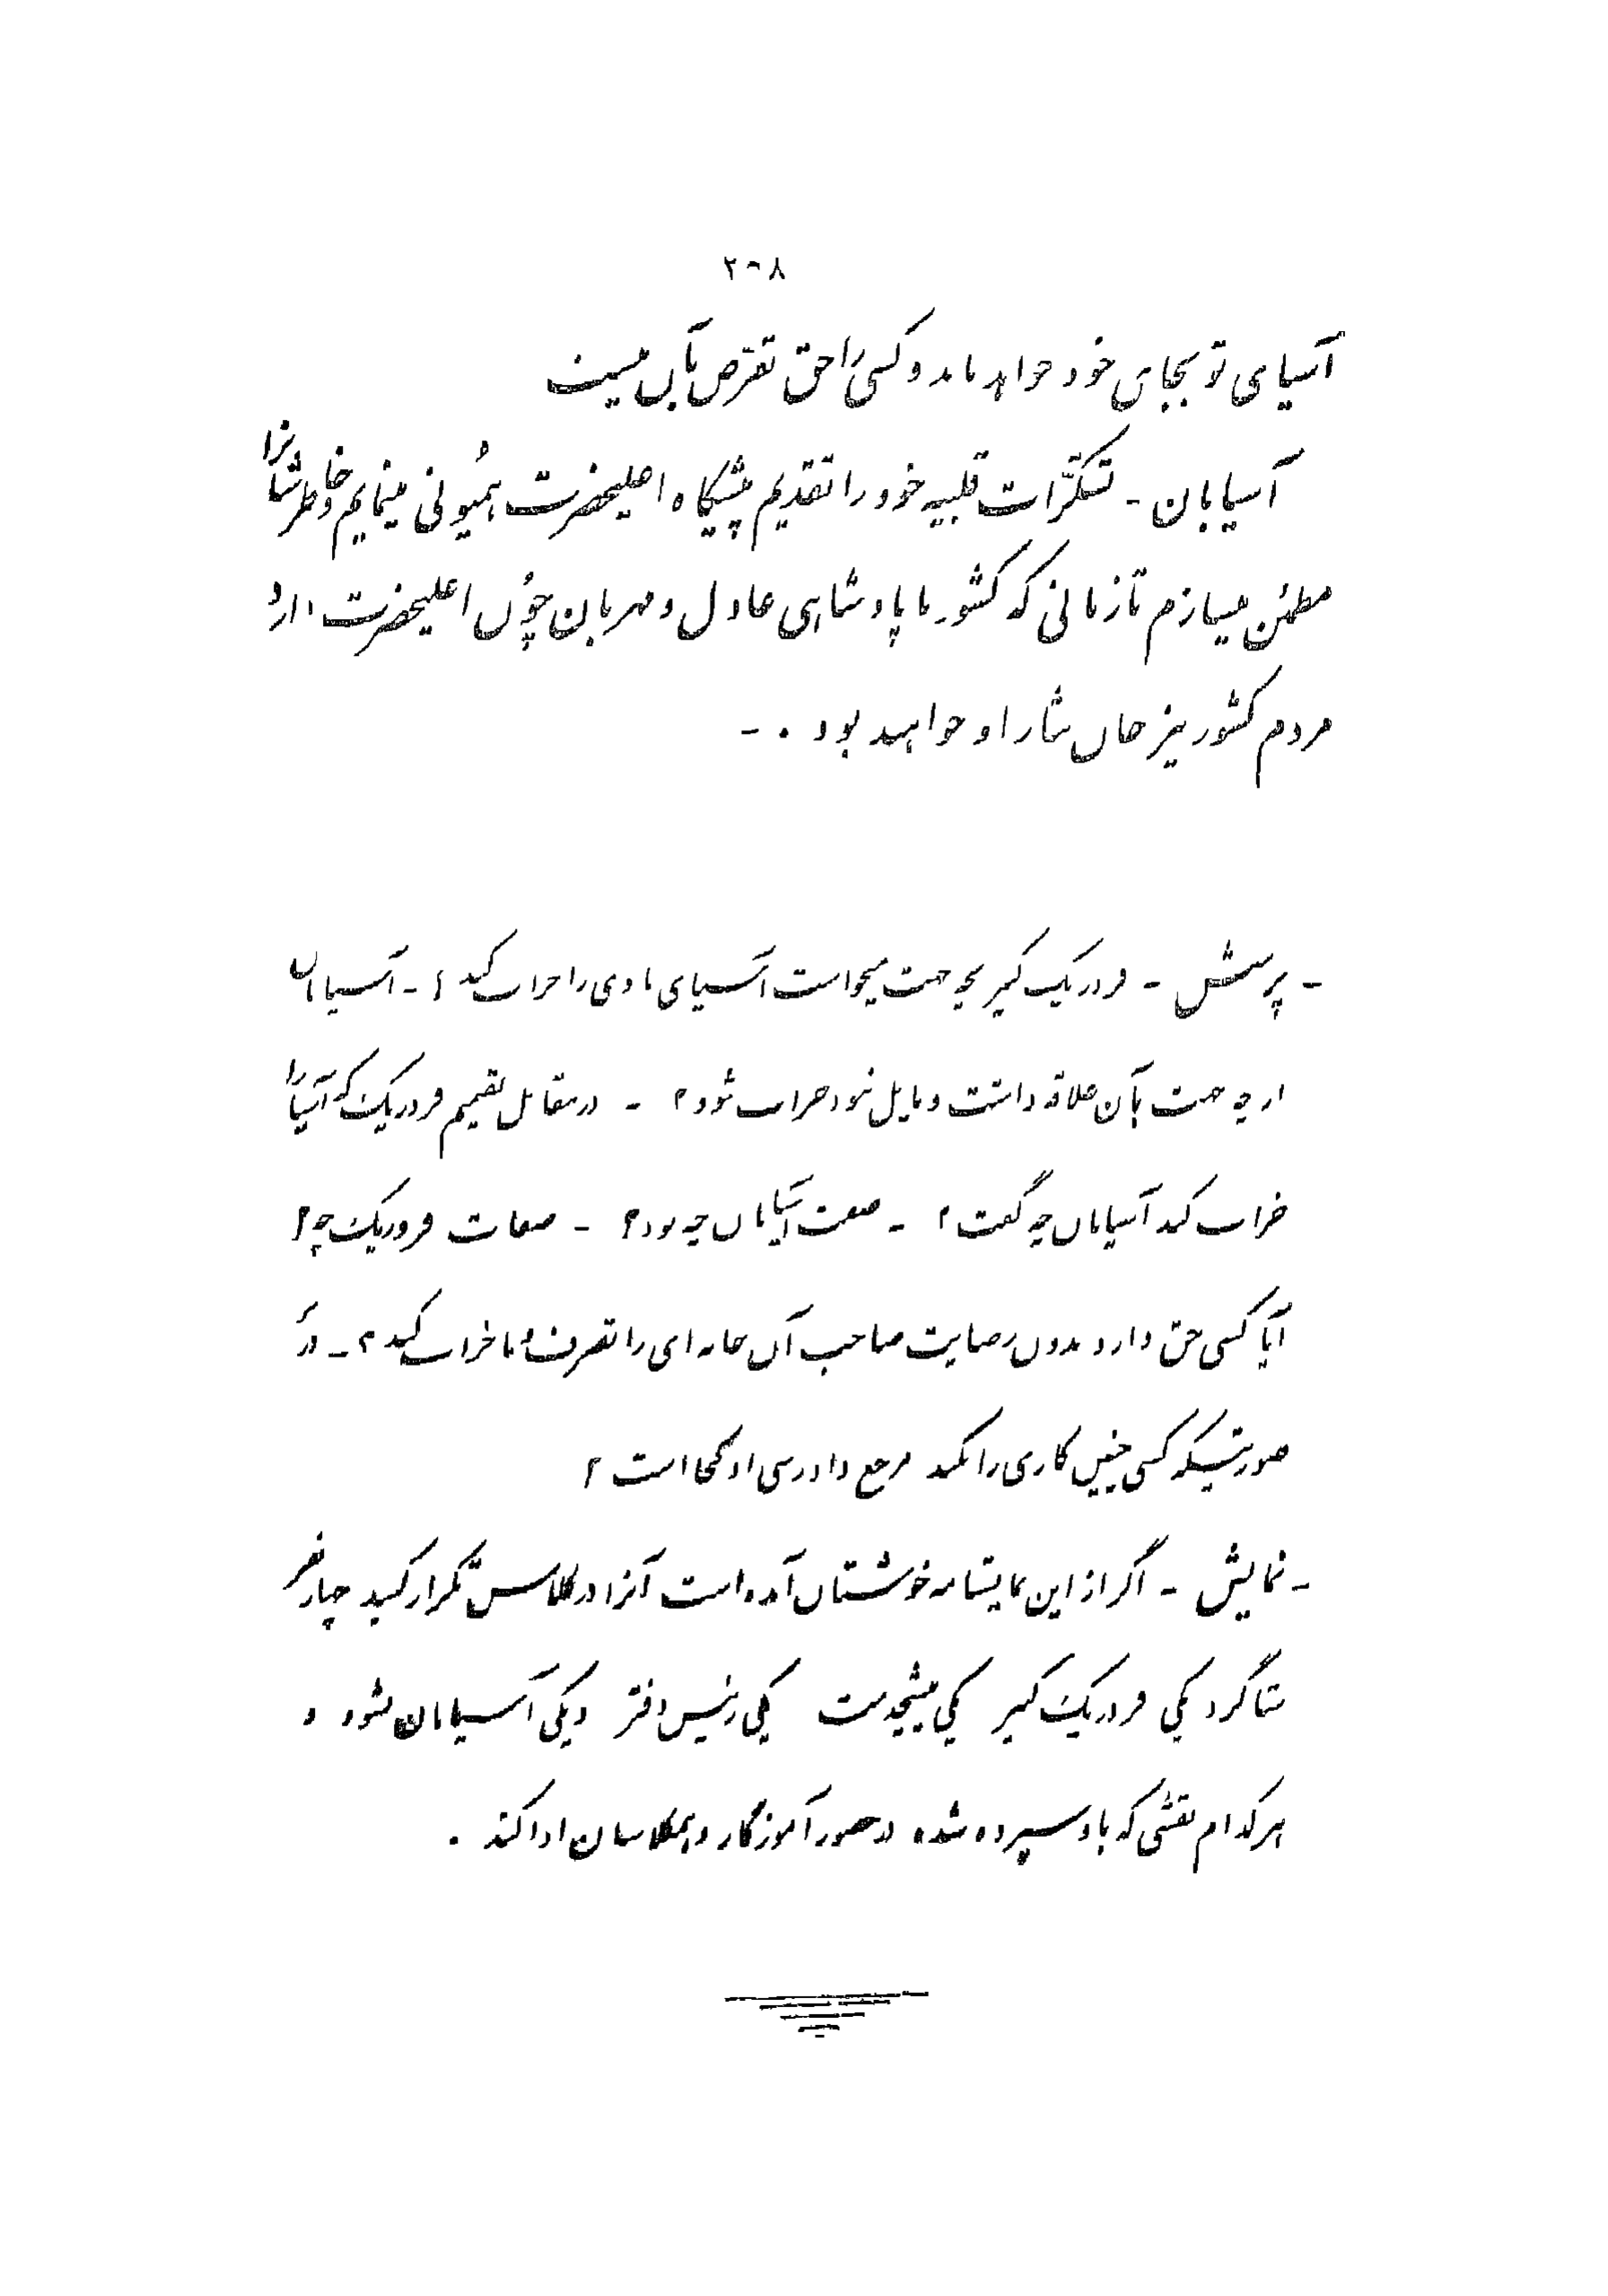 ۲۰۸
آسیای تو بجای خود خواهد ماند و کسی را حق تعرّض بآن نیست
آسیابان - تشکّرات قلبیه خود را تقدیم پیشگاه اعلیحضرت همیونی مینمایم و خاطر شما را
مطمئن میسازم تا زمانی که کشور ما پادشاهی عادل و مهربان چون اعلیحضرت دارد
مردم کشور نیز جان نثار او خواهند بود . -
- پرسش - فردریک کبیر بچه جهت میخواست آسیای بادی را خراب کند ؟ - آسیابان
از چه جهت بآن علاقه داشت و مایل نبود خراب شود ؟ - در مقابل تصمیم فردریک که آسیا را
خراب کند آسیابان چه گفت ؟ - صفت آسیابان چه بود ؟ - صفات فردریک چه ؟
آیا کسی حق دارد بدون رضایت صاحب آن خانه ای را تصرف و یا خراب کند ؟ - در
صورتیکه کسی چنین کاری را بکند مرجع دادرسی او کجا است ؟
- نمایش - اگر از این نمایشنامه خوشتان آمده است آنرا در کلاس تکرار کنید چهار نفر
شاگرد یکی فردریک کبیر یکی پیشخدمت یکی رئیس دفتر و یکی آسیابان بشود و
هر کدام نقشی که باو سپرده شده در حضور آموزگار و همکلاسان ادا کند .